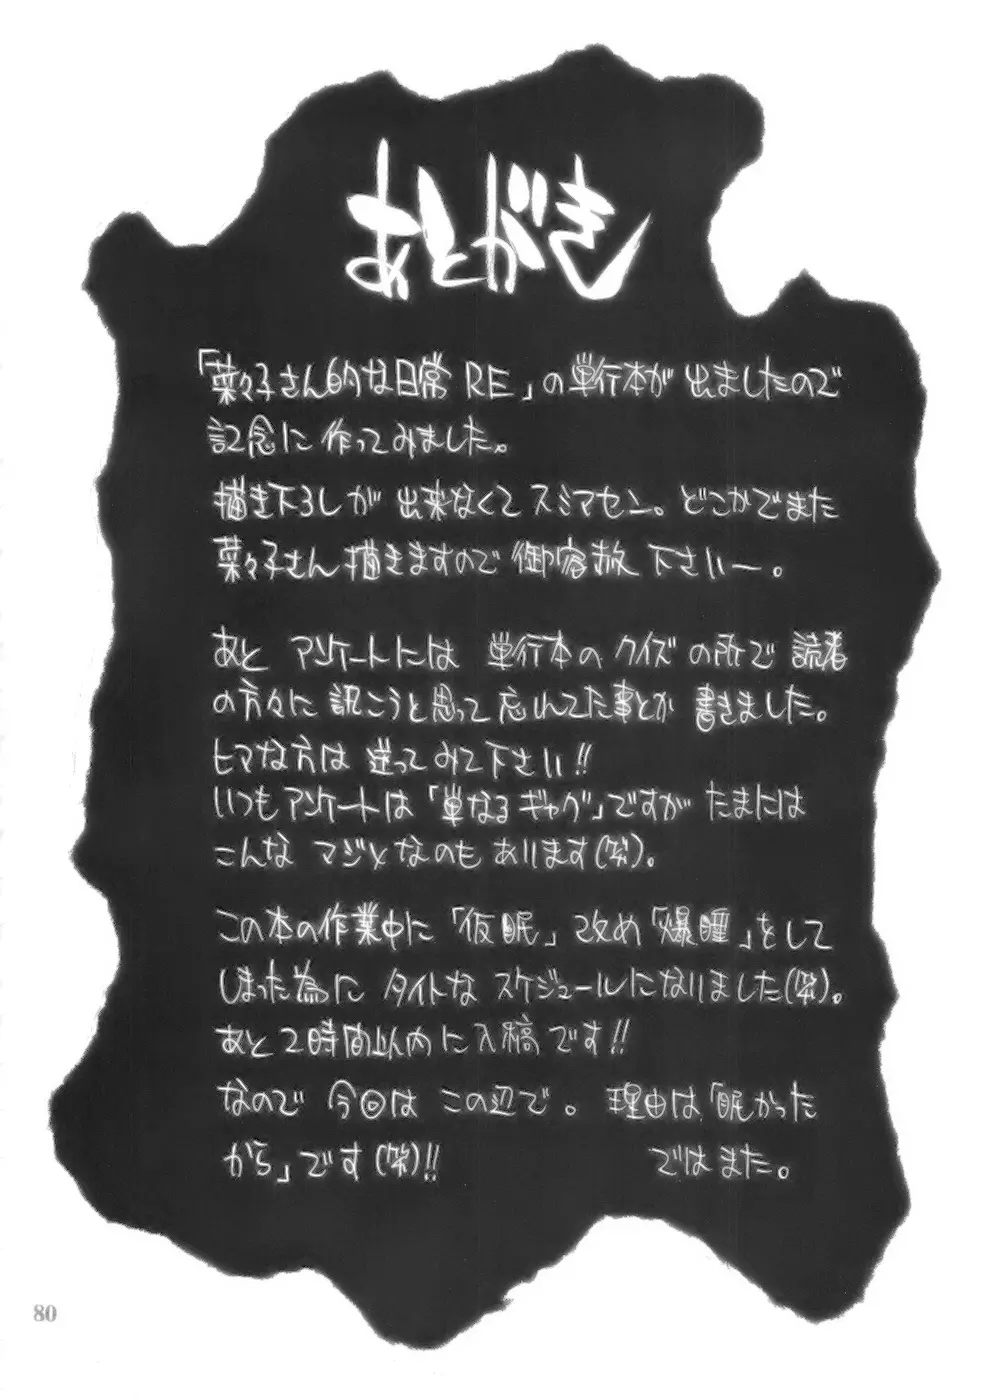 あとがき
「菜々子さん的な日常RE」の単行本が出ましたので
記念に作ってみました。
描き下ろしが出来なくてスミマセン。どこかでまた
菜々子さん描きますので御容赦下さいー。
あとアンケートには単行本のクイズの所で読者
の方々に訊こうと思って忘れてた事とか書きました。
ヒマな方は送ってみて下さい!!
いつもアンケートは「単なるギャグ」ですがたまには
こんなマジメなのもあります(笑)。
この本の作業中に「仮眠」改め「爆睡」をして
しまった為にタイトなスケジュールになりました(笑)。
あと2時間以内に入稿です!!
なので今回はこの辺で。理由は「眠かった
から」です(笑)!! ではまた。
80